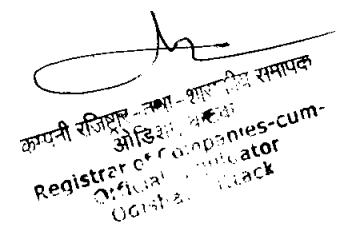 कम्पनी रजिष्ट्रार - तथा - शासकीय समापक
ओडिशा,
Registrar of Companies-cum-
Official Liquidator
Odisha, Cuttack